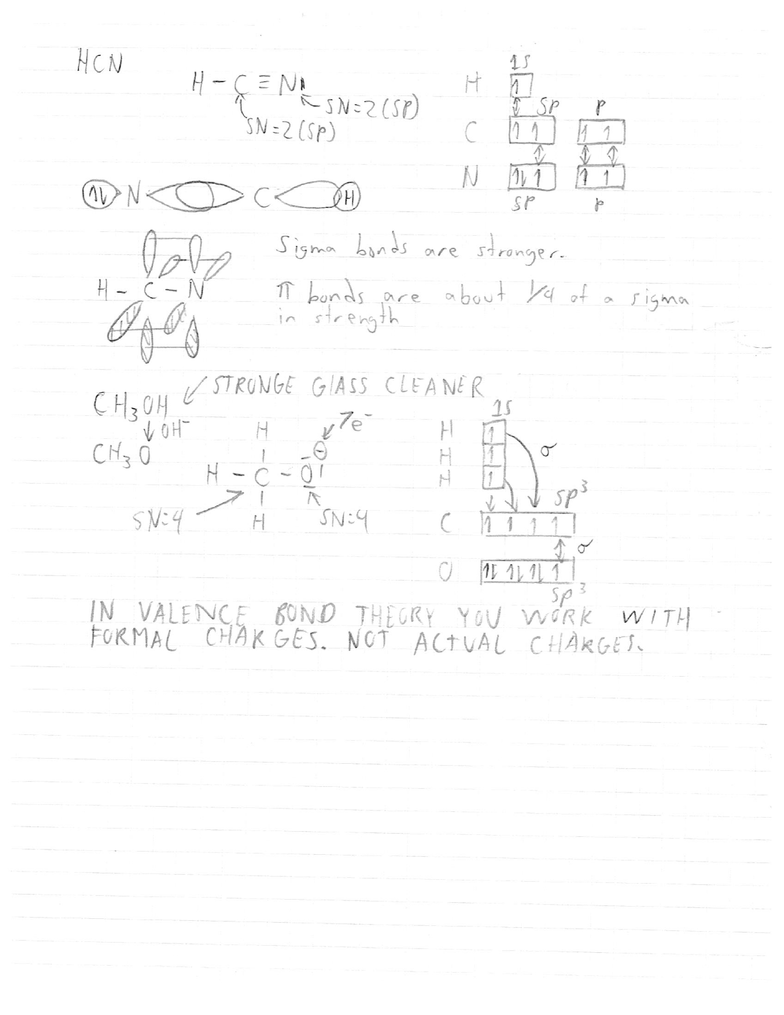 HCN
H - C ≡ N
SN=2 (SP)
SN=2 (SP)
1s
H 1
SP P
C 1 1 1 1
N 1L 1 1 1
SP P
1L N C H
Sigma bonds are stronger.
H - C - N
π bonds are about 1/4 of a sigma
in strength
CH3OH STRONGE GLASS CLEANER
↓ OH-
CH3O
7e-
H
H - C - O
H
SN=4 SN=4
1s
H 1
H 1
H 1
σ
SP3
C 1 1 1 1
σ
O 1L 1L 1L 1
SP3
IN VALENCE BOND THEORY YOU WORK WITH
FORMAL CHARGES. NOT ACTUAL CHARGES.